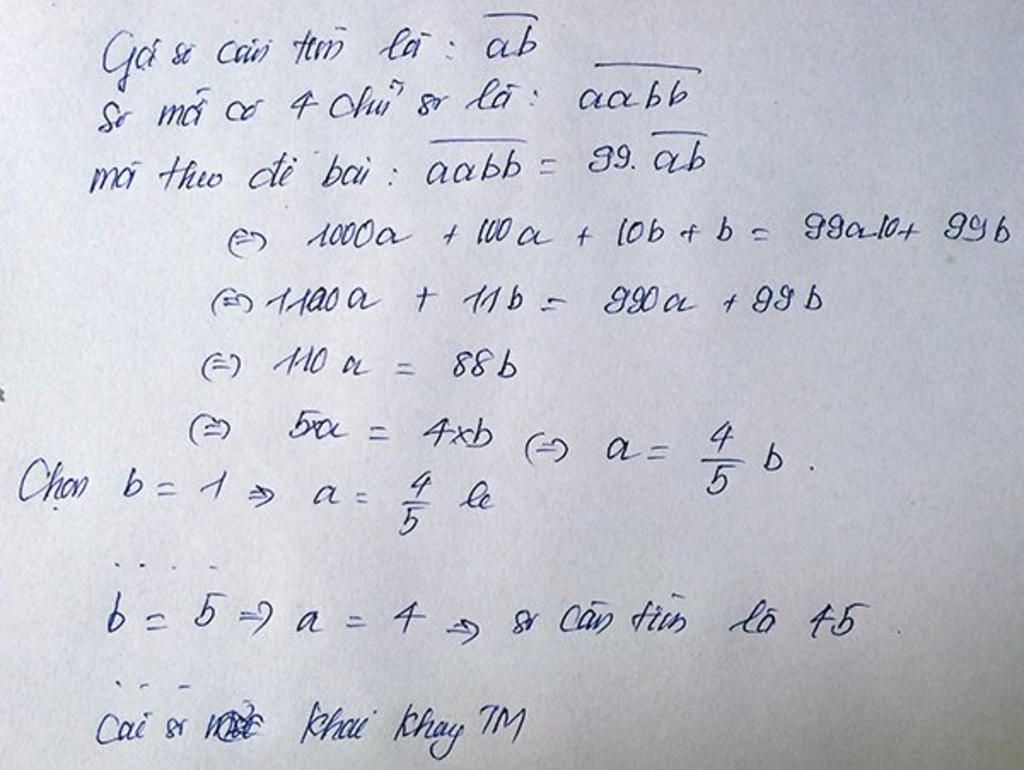 Gọi số cần tìm là : ab
Số mới có 4 chữ số là : aabb
mà theo đề bài : aabb = 99. ab
(=) 1000a + 100a + 10b + b = 99a10 + 99b
(=) 1100a + 11b = 990a + 99b
(=) 110a = 88b
(=) 5a = 4×b (=) a = 4/5 b .
Chọn b = 1 => a = 4/5 lẻ
. . . . .
b = 5 => a = 4 => số cần tìm là 45 .
. . .
Các số khác không TM